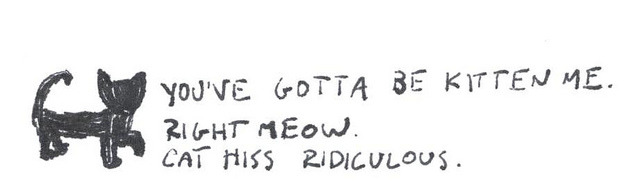 YOU'VE GOTTA BE KITTEN ME.
RIGHT MEOW.
CAT HISS RIDICULOUS.